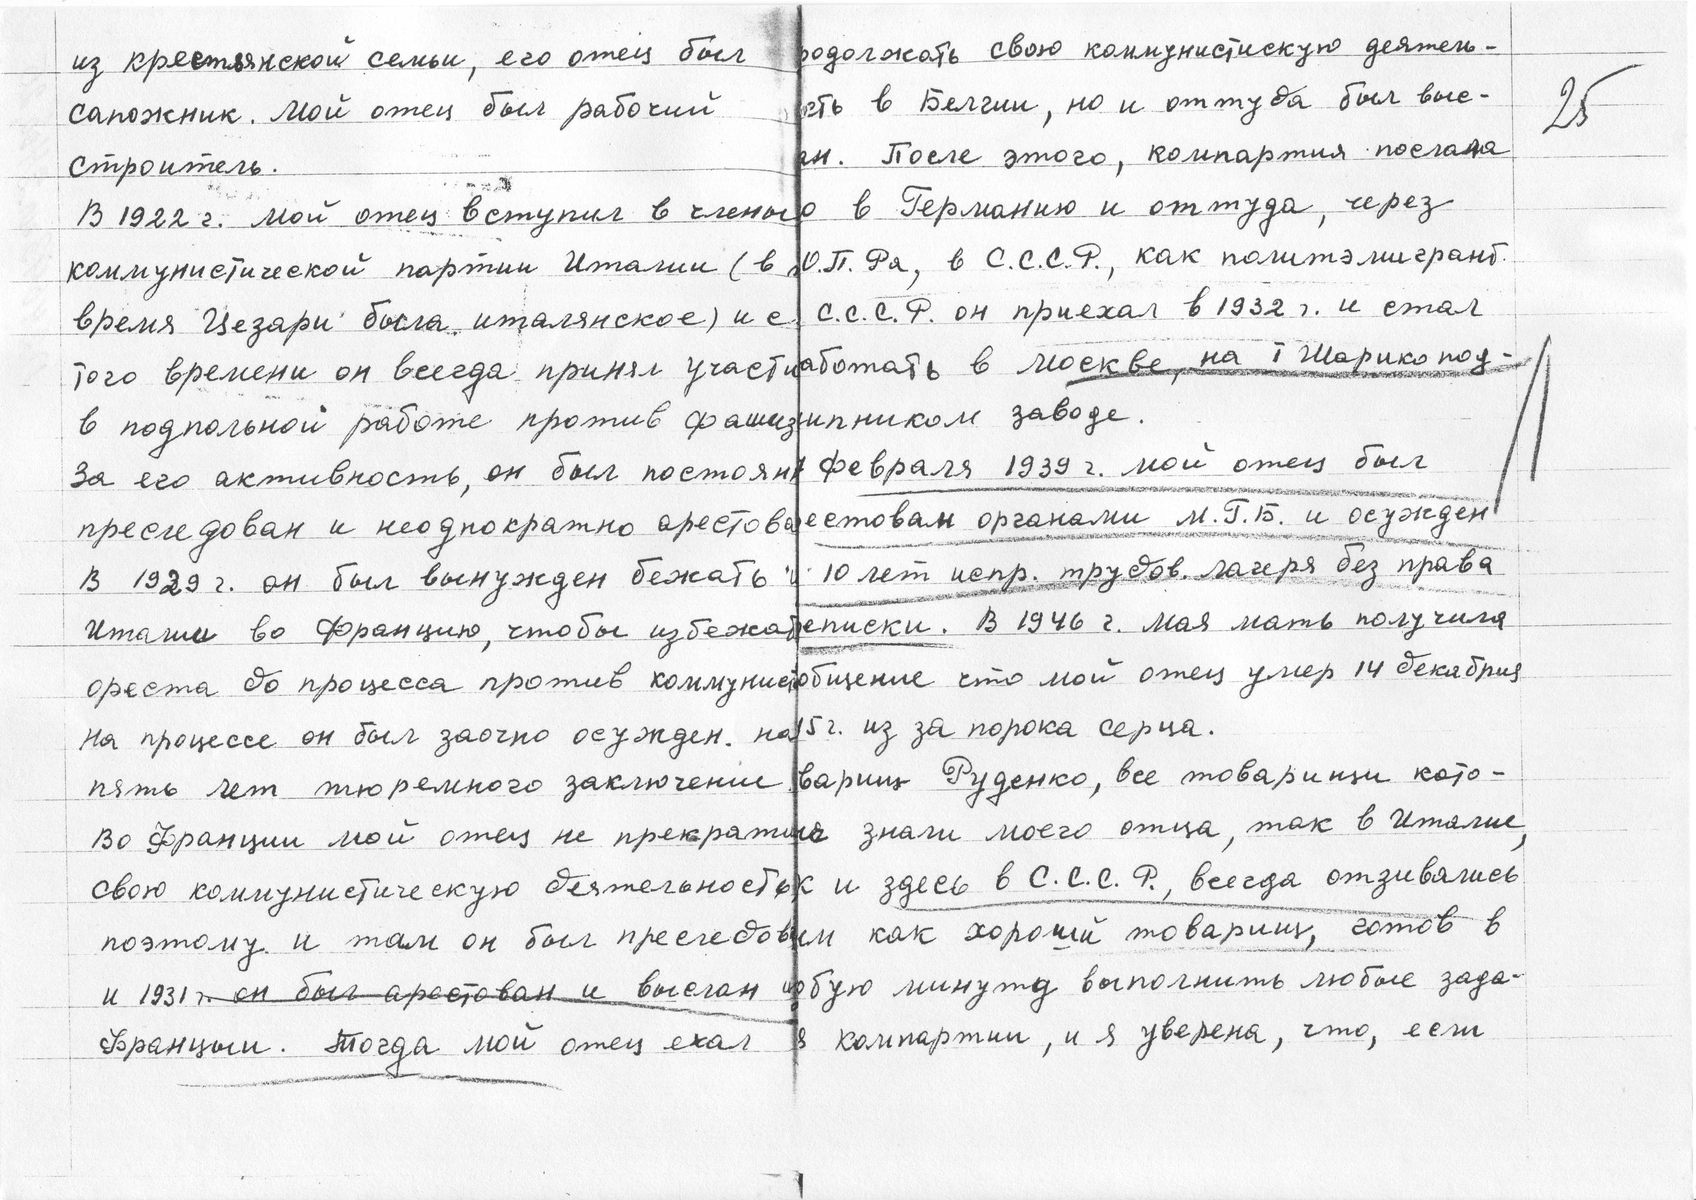 из крестьянской семьи, его отец был
сапожник. Мой отец был рабочий
строитель.
В 1922 г. мой отец вступил в члены
коммунистической партии Италии (в
время Цезари была италянское) и с
того времени он всегда принял участи
в подпольной работе против фашиз
За его активность, он был постоян
преследован и неоднократно арестова
В 1929 г. он был вынужден бежать и
Италии во Францию, чтобы избежат
ареста до процесса против коммунист
На процессе он был заочно осужден на
пять лет тюремного заключение
Во Франции мой отец не прекратил
свою коммунистическую деятельность
поэтому и там он был преследов
и 1931 г. он был арестован и выслан из
Францыи. Тогда мой отец ехал
25
родолжать свою коммунистискую деятель-
сть в Белгии, но и оттуда был выс-
ан. После этого, компартия послала
о в Германию и оттуда, через
Ю.П. Ра, в С.С.С.Р., как политэмигрант.
С.С.С.Р. он приехал в 1932 г. и стал
аботать в Москве, на I Шарикопод-
ипником заводе.
февраля 1939 г. мой отец был
естован органами М.Г.Б. и осужден
10 лет испр. трудов. лагеря без права
еписки. В 1946 г. мая мать получила
общение что мой отец умер 14 декабрия
5 г. из за порока серца.
вариш Руденко, все товарищи кото-
знали моего отца, так в Италие,
к и здесь в С.С.С.Р., всегда отзивались
ем как хороший товарищ, готов в
бую минуту выполнить любые зада-
я компартии, и я уверена, что, если